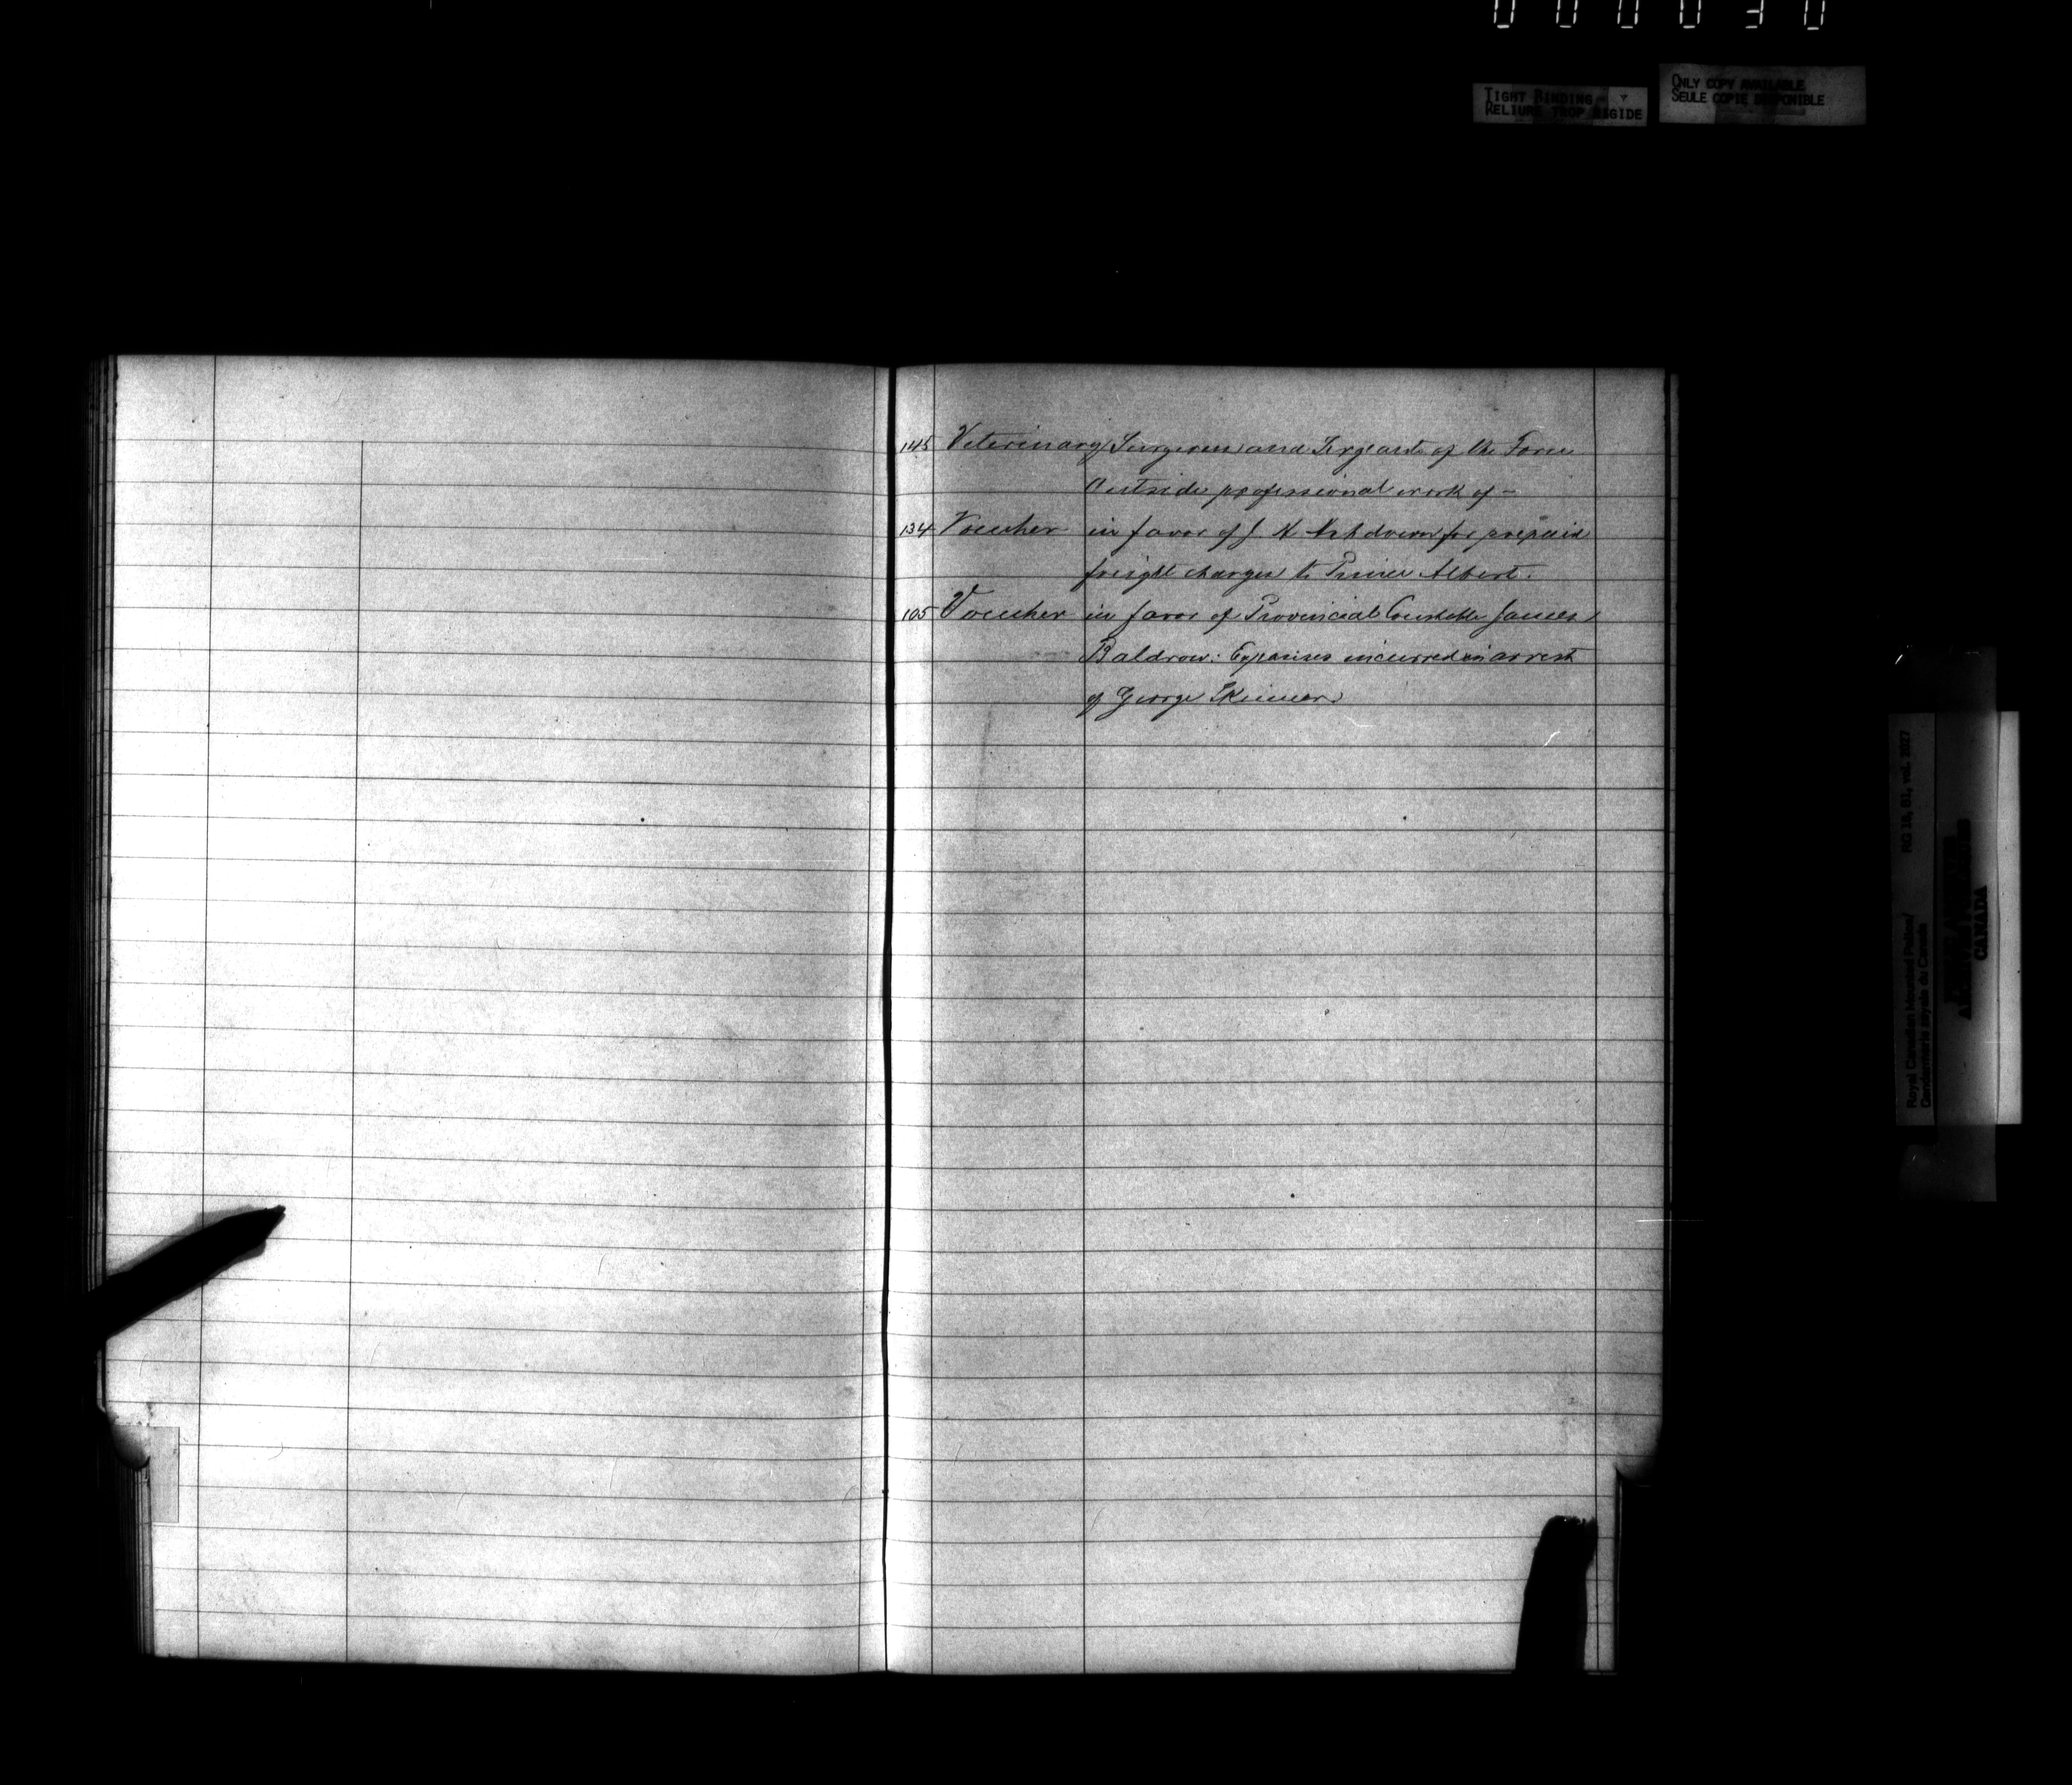 000030
TIGHT BINDING
RELIURE TROP RIGIDE
ONLY COPY AVAILABLE
SEULE COPIE DISPONIBLE
145 Veterinary Surgeons and Sergeants of the Force
Outside professional work of -
134 Voucher in favor of J H Ashdown for prepaid
freight charges to Prince Albert.
105 Voucher in favor of Provincial Constable James
Baldrow: Expenses incurred in arrest
of George Skinner
RG 18, B1, vol. 2027
Royal Canadian Mounted Police/
Gendarmerie royale du Canada
CANADA